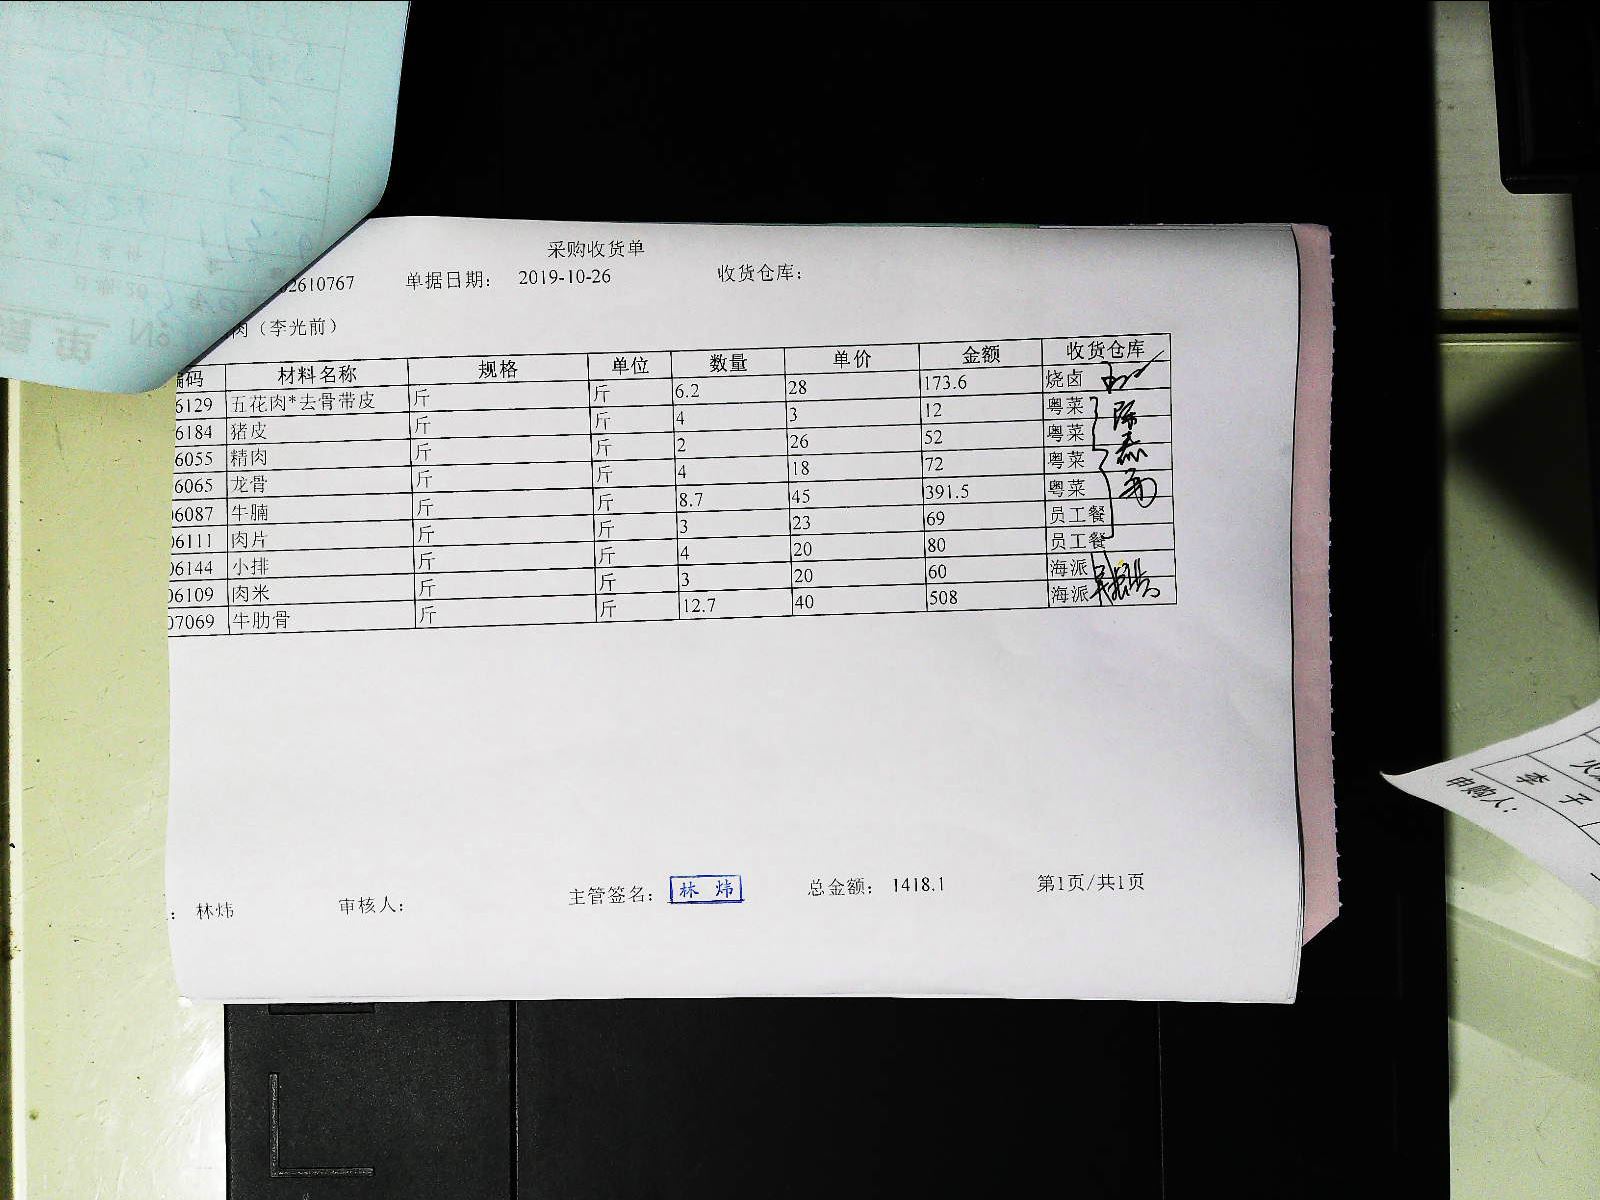 采购收货单
02610767 单据日期： 2019-10-26 收货仓库：
肉（李光前）
编码 材料名称 规格 单位 数量 单价 金额 收货仓库
6129 五花肉*去骨带皮 斤 斤 6.2 28 173.6 烧卤
6184 猪皮 斤 斤 4 3 12 粤菜
6055 精肉 斤 斤 2 26 52 粤菜
6065 龙骨 斤 斤 4 18 72 粤菜
06087 牛腩 斤 斤 8.7 45 391.5 粤菜
06111 肉片 斤 斤 3 23 69 员工餐
06144 小排 斤 斤 4 20 80 员工餐
06109 肉米 斤 斤 3 20 60 海派
07069 牛肋骨 斤 斤 12.7 40 508 海派
：林炜 审核人： 主管签名： 林炜 总金额： 1418.1 第1页/共1页
李子
申购人：